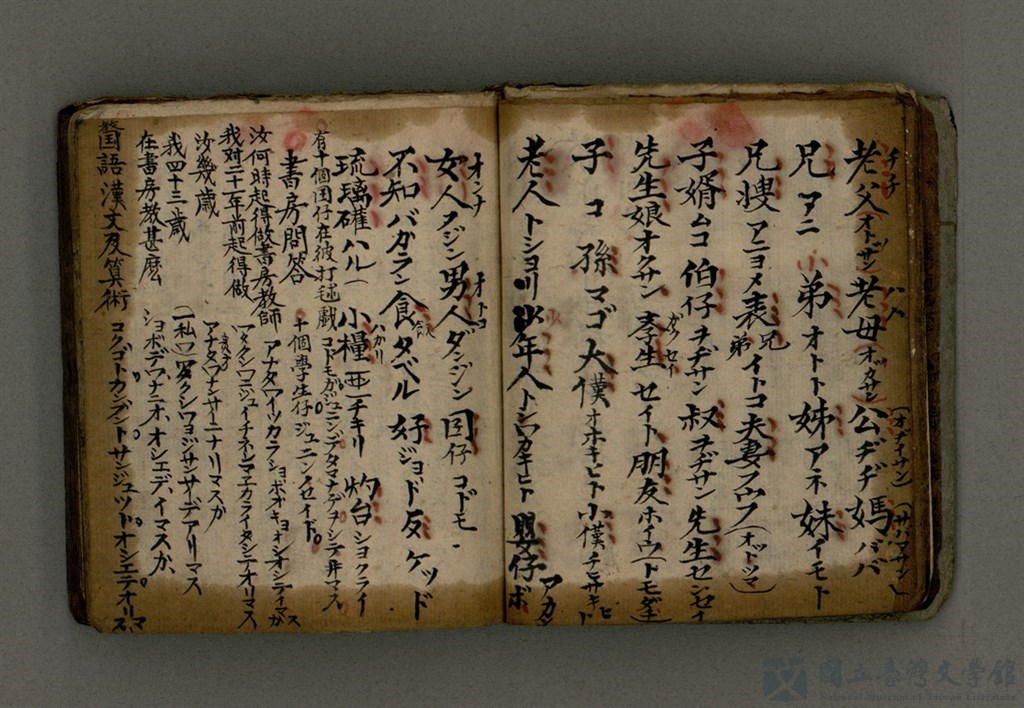 老父オトサン老母オカサン公ヂヂ媽ババ
チチ ハハ (オヂイサン)
兄アニ 弟オトト 姊アネ 妹イモト
兄嫂アニヨメ 表兄弟イトコ 夫妻フウフ(オットツマ)
子婿ムコ 伯仔ヲヂサン 叔ヲヂサン 先生センセイ
先生娘オクサン 孝生セイト 朋友ホイウ(トモダチ)
ガクセイ
子コ 孫マゴ 大僕オホキヒト 小僕チヒサキヒト
老人トシヨリ 少年人トシワカキヒト 嬰仔アカンボ
女人ヌジン 男人ダンジン 囝仔コドモ
オンナ オトコ
不知バカラン 食タベル 好ジョード 反ケッド
琉璃礶ハル(ハカリ) 小糧亜チキリ 灼台ショクライ
有十個囝仔在彼打毬戲 コドモガジュニンデタマナデヲシテ井マス
書房問答 十個學生仔 ジュニンノセイド。
汝何時起得做書房教師 アナタワイツカラショボオキョオシオシテイマスカ
我対二十年前起得做 ワタクシワニジュイチネンマエカライタシテオリマス
汝幾歲 アナタワナンサイニナリマスカ
我四十三歲 (私ワ)ヨンジンサイデアリマス
在書房教甚麼 ショボデワナニオ、オシエデ、イマスか、
國語漢文及算術 コクゴトカンブントサンジュツトオシエテオリマス
國立臺灣文學館
National Museum of Taiwan Literature